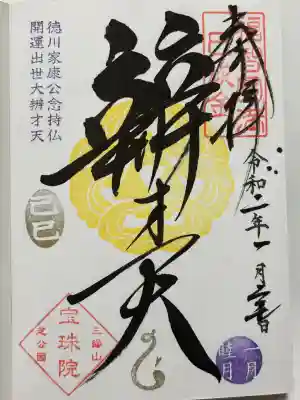 奉拝
令和二年一月六日
辨才天
徳川家康公念持仏
開運出世大辨才天
己巳
三縁山
宝珠院
芝公園
一月
睦月